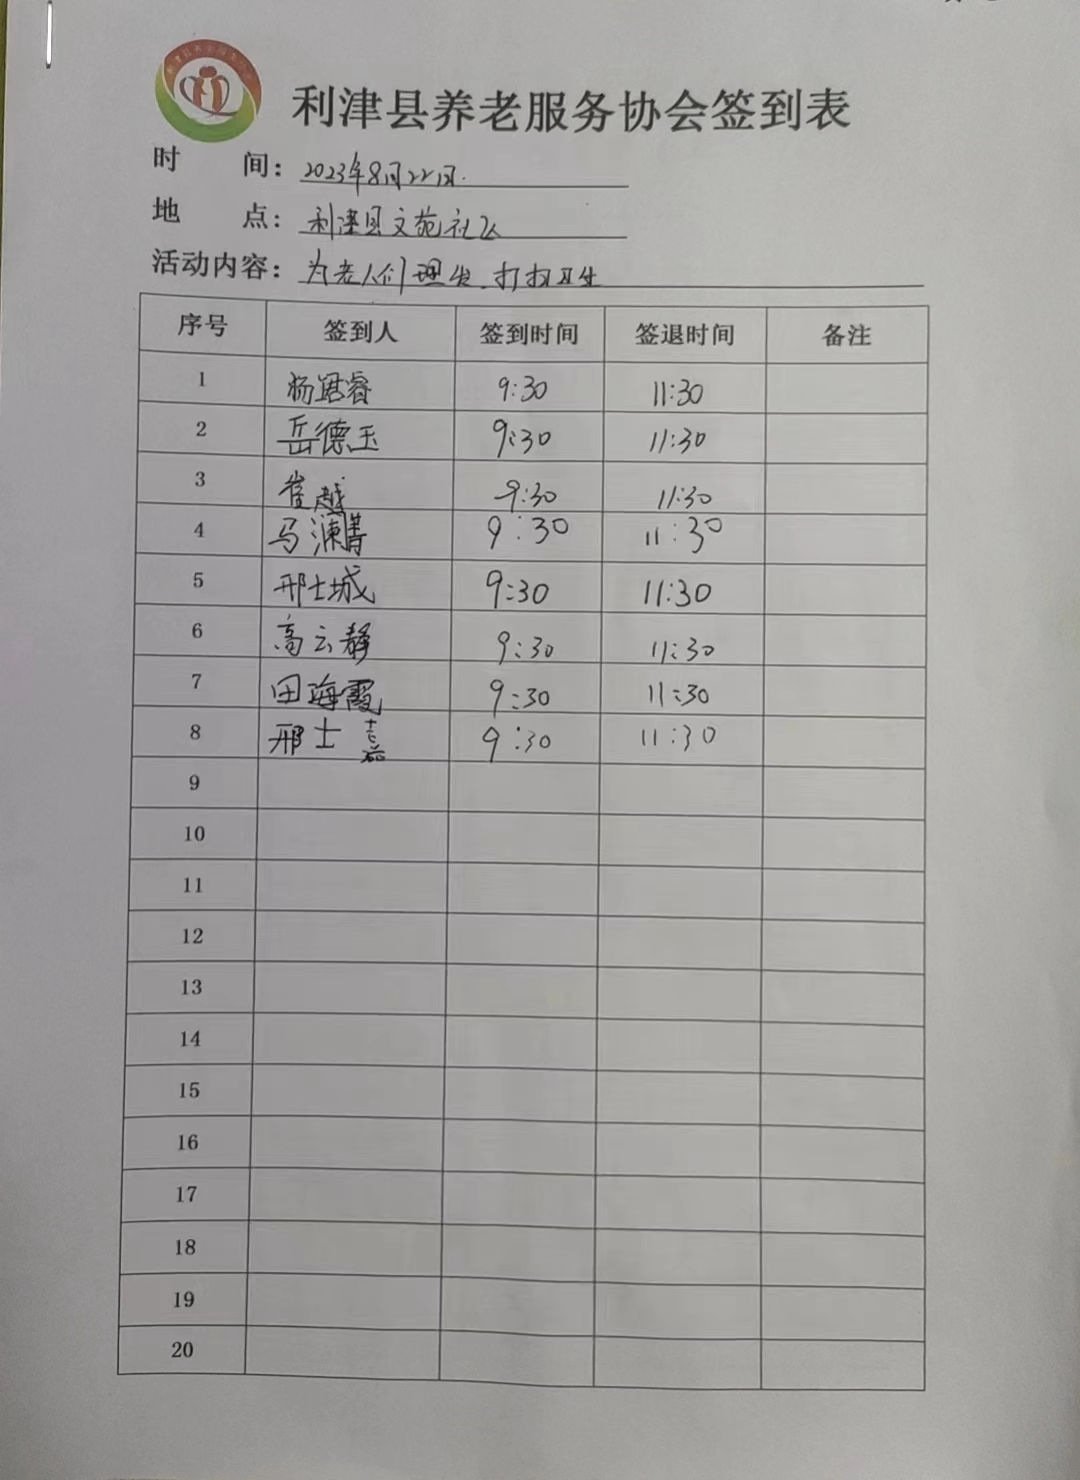 利津县养老服务协会签到表
时 间：2023年8月22日.
地 点：利津县文苑社区
活动内容：为老人们理发、打扫卫生
序号 签到人 签到时间 签退时间 备注
1 杨琚睿 9:30 11:30
2 岳德玉 9:30 11:30
3 崔越 9:30 11:30
4 马涑菁 9:30 11:30
5 邢士城 9:30 11:30
6 高云静 9:30 11:30
7 田海霞 9:30 11:30
8 邢士嘉 9:30 11:30
9
10
11
12
13
14
15
16
17
18
19
20